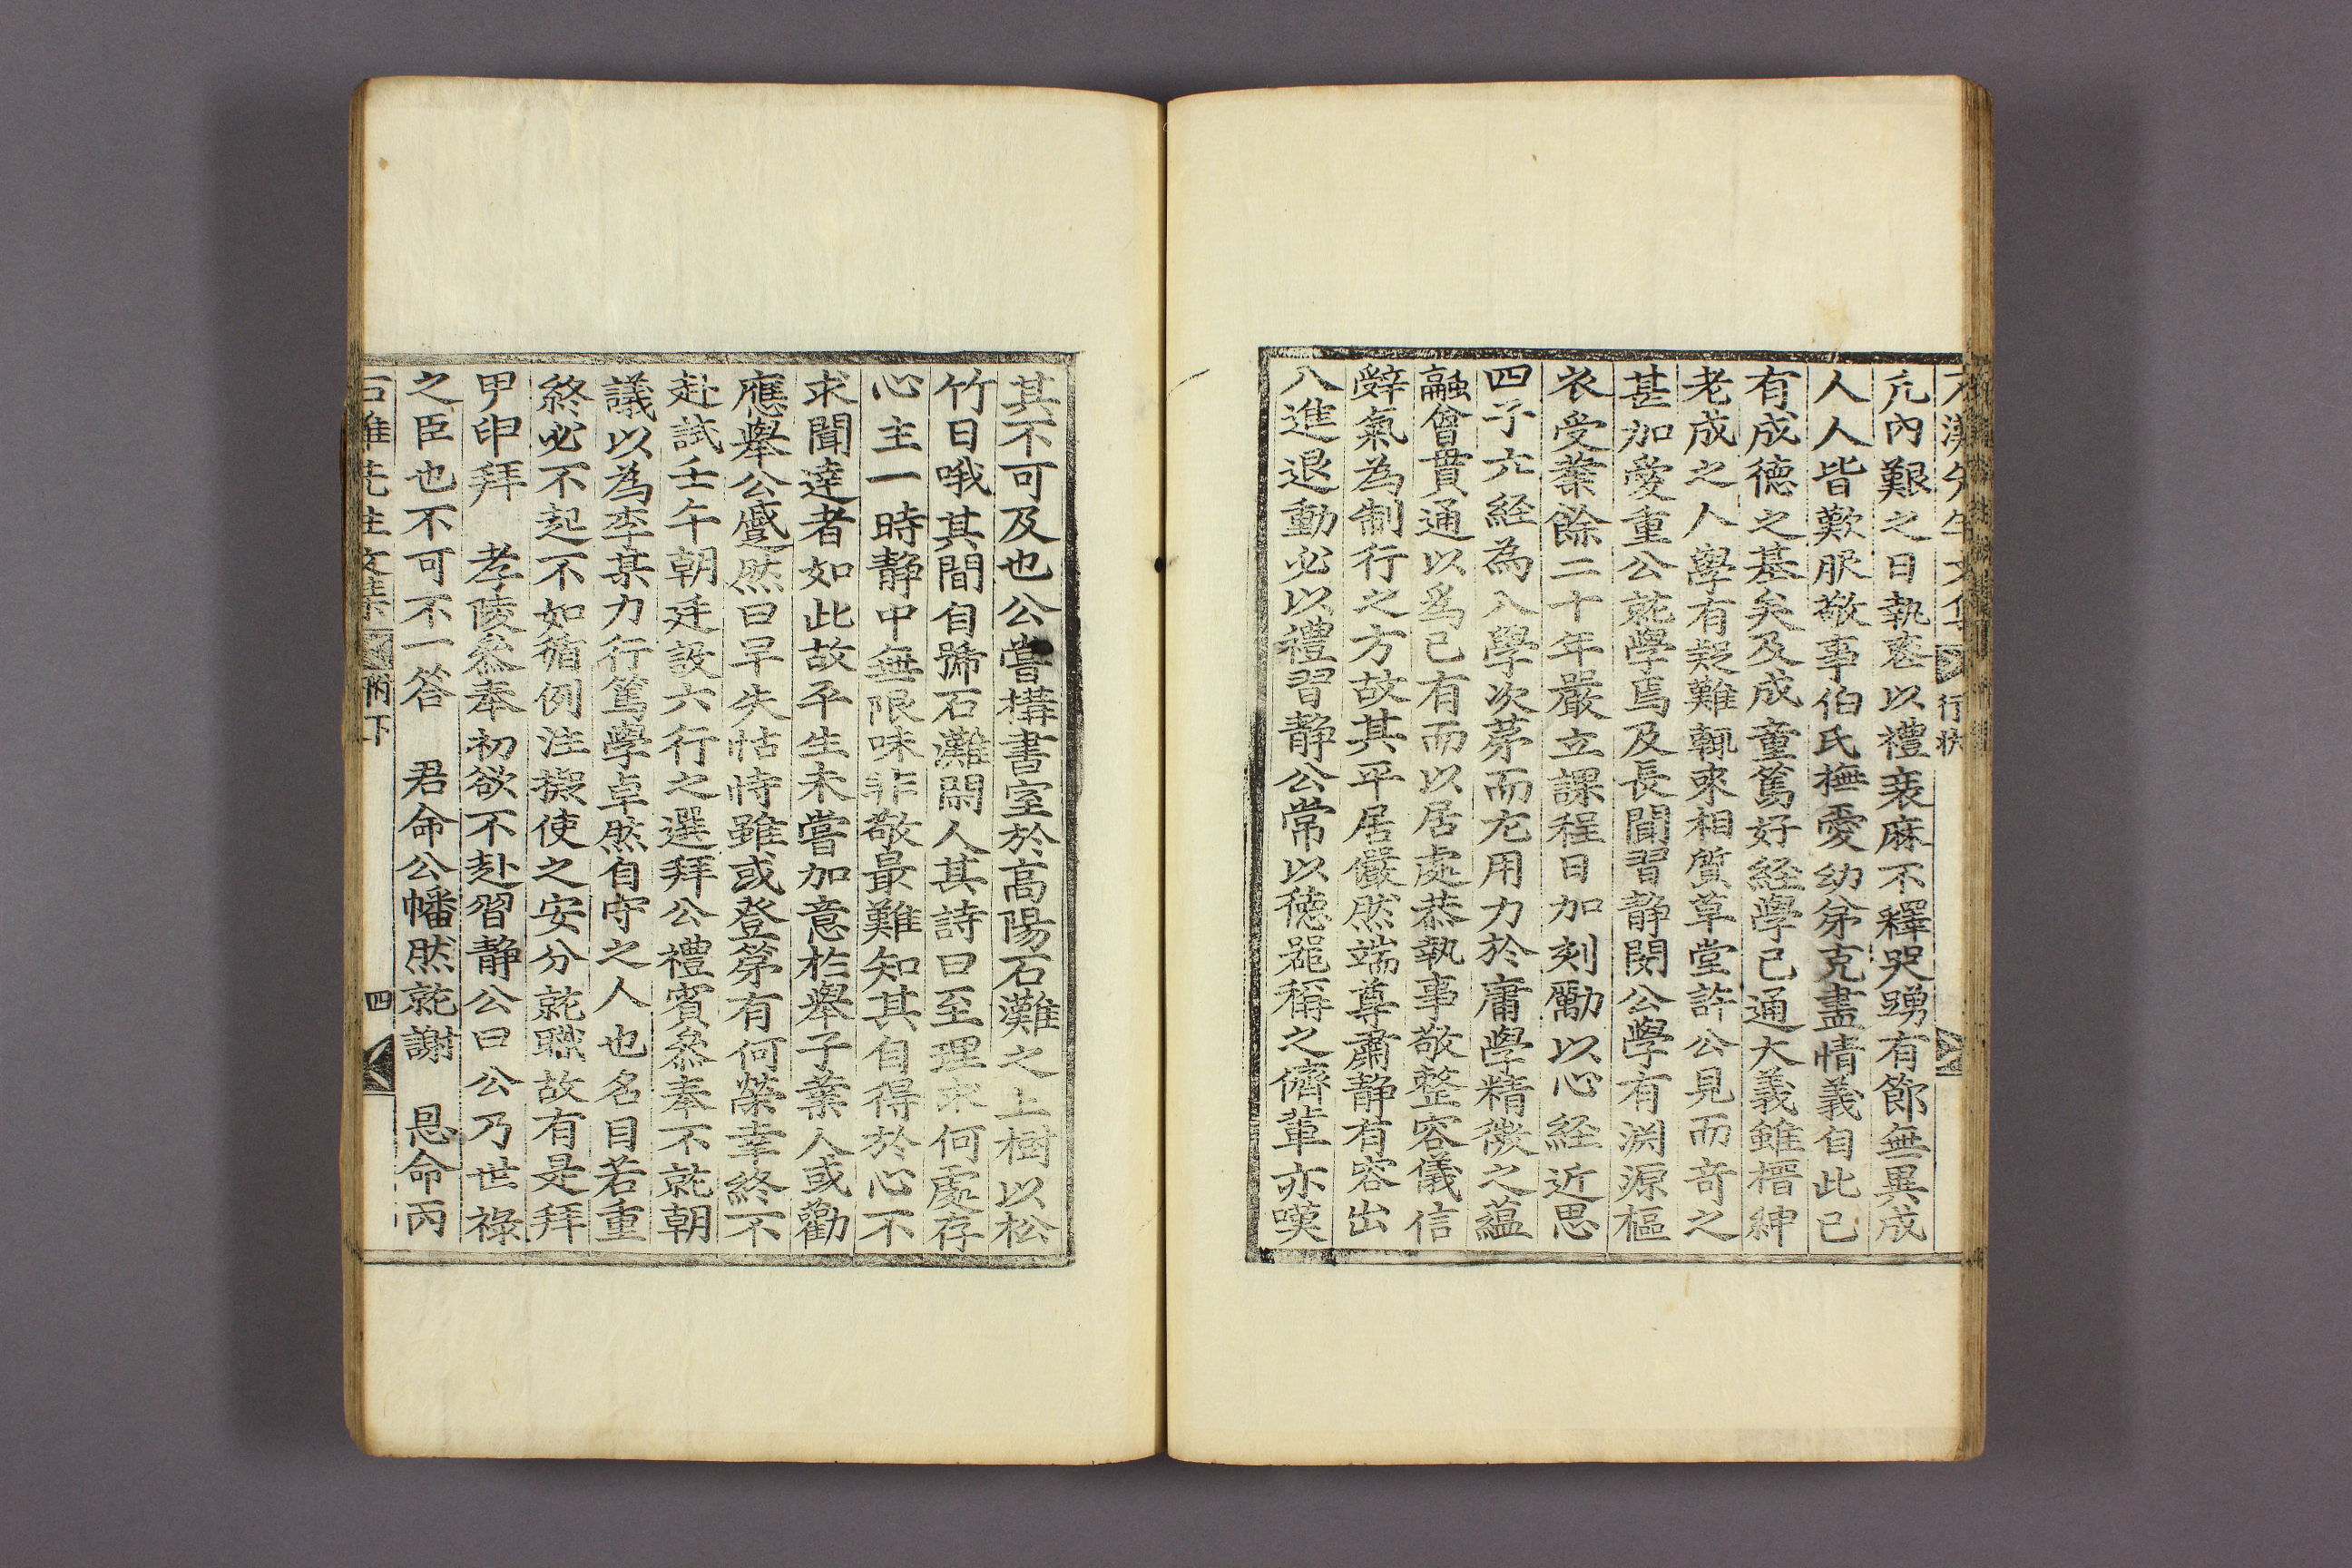 行狀
凢內艱之日執喪以禮衰麻不釋哭踴有節無異成
人人皆歎服敬事伯氏撫愛幼弟克盡情義自此已
有成德之基矣及成童篤好經學已通大義雖搢紳
老成之人學有疑難輒來相質草堂許公見而奇之
甚加愛重公就學焉及長聞習靜閔公學有淵源樞
衣受業餘二十年嚴立課程日加刻勵以心經近思
四子六經為入學次苐而尤用力於庸學精微之蘊
融會貫通以爲己有而以居處恭執事敬整容儀信
辭氣為制行之方故其平居儼然端尊肅靜有容出
入進退動必以禮習靜公常以德器稱之儕輩亦嘆
其不可及也公嘗構書室於高陽石灘之上樹以松
竹日哦其間自號石灘閒人其詩曰至理求何處存
心主一時靜中無限味非敬最難知其自得於心不
求聞達者如此故平生未嘗加意於舉子業人或勸
應舉公蹙然曰早失怙恃雖或登第有何榮幸終不
赴試壬午朝廷設六行之選拜公禮賓叅奉不就朝
議以為李某力行篤學卓然自守之人也名目若重
終必不起不如循例注擬使之安分就職故有是拜
甲申拜 孝陵叅奉初欲不赴習靜公曰公乃世祿
之臣也不可不一答 君命公幡然就謝 恩命丙
石灘先生文集 附下 四